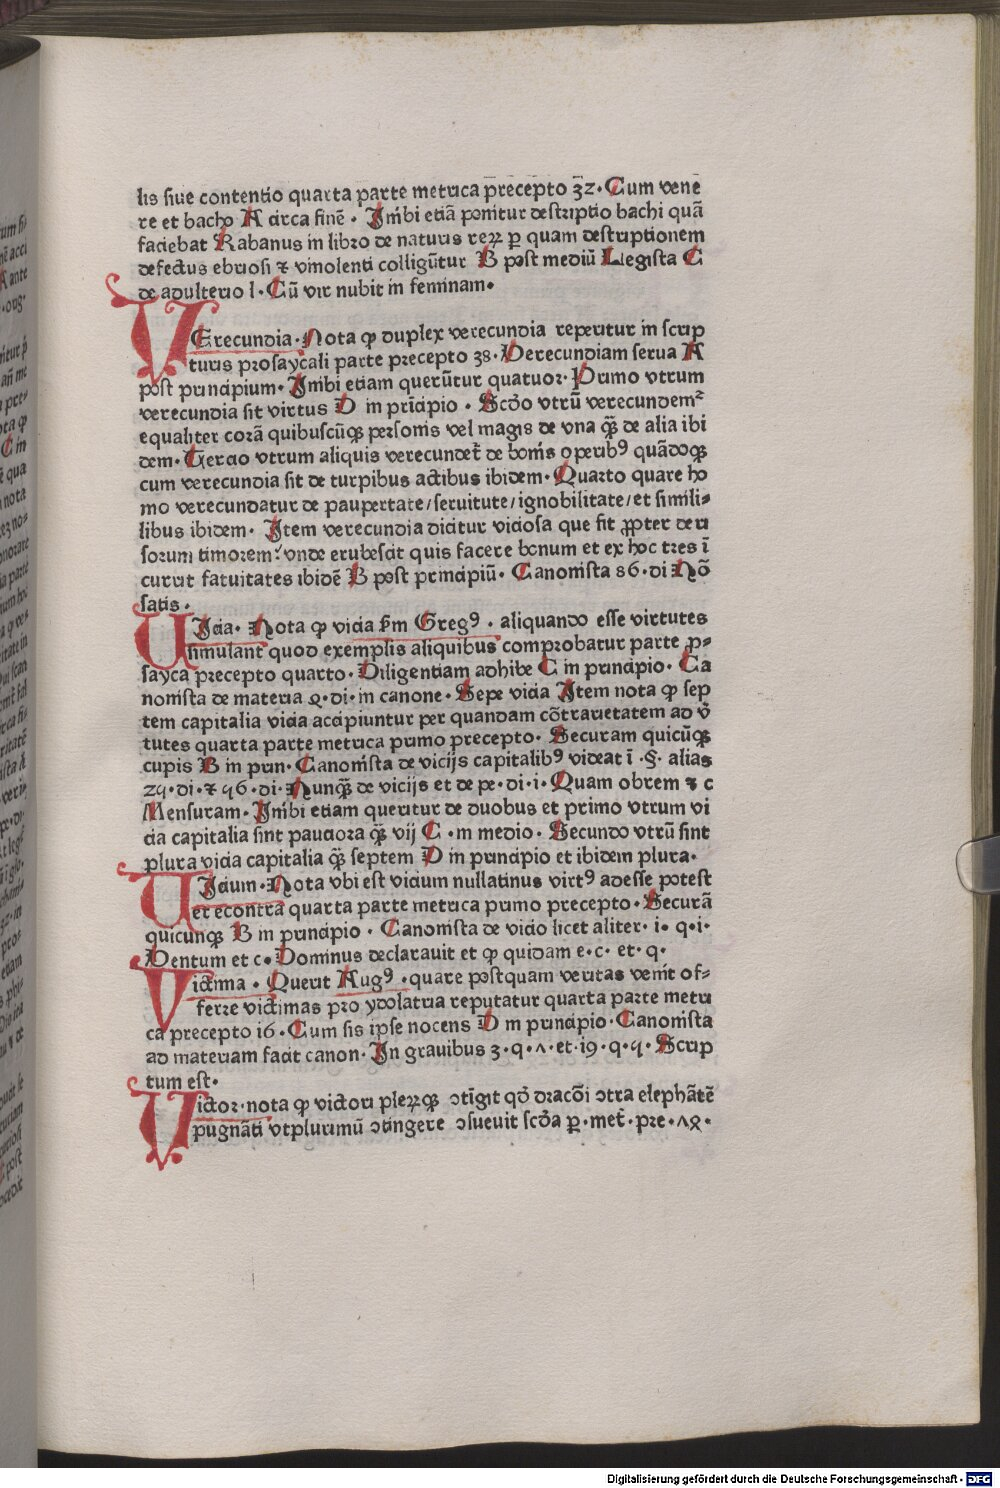 lis siue contentio quarta parte metrica precepto 32. Cum vene
re et bacho A circa finē. Inibi etiā ponitur descriptio bachi quā
faciebat Rabanus in libro de naturis reꝝ ꝑ quam descriptionem
defectus ebriosi ⁊ vinolenti colligūtur B post mediū Llegista C
de adulterio l. Cū vir nubit in feminam.
VErecundia. Nota ꝙ duplex verecundia reperitur in scrip
turis prosaycali parte precepto 38. Verecundiam serua A
post principium. Inibi etiam querūtur quatuor. Primo vtrum
verecundia sit virtus D in prīcipio. Scdo vtrū verecundemᷣ
equaliter corā quibuscūqꝫ personis vel magis de vna qꝫ̄ de alia ibi
dem. Tercio vtrum aliquis verecundet̄ de bonis operibꝰ quādoqꝫ
cum verecundia sit de turpibus actibus ibidem. Quarto quare ho
mo verecundatur de paupertate/seruitute/ignobilitate/et simili⸗
libus ibidem. Item verecundia dicitur viciosa que fit ꝓpter deri
sorum timorem: vnde erubescit quis facere bonum et ex hoc tres ī
curūt fatuitates ibidē B post principiū. Canonista 86. di Nō
satis.
UIcia. Nota ꝙ vicia ẜm Gregꝰ. aliquando esse virtutes
simulant quod exemplis aliquibus comprobatur parte p⸗
sayca precepto quarto. Diligentiam adhibe C in principio. Ca
nonista de materia ꝯ. di. in canone. Sepe vicia Item nota ꝙ sep
tem capitalia vicia accipiuntur per quandam cōtrarietatem ad v̄
tutes quarta parte metrica primo precepto. Securam quicūqꝫ
cupis B in prin. Canonista de vicijs capitalibꝰ videat ī .§. alias
24. di. ⁊ 46. di. Nunqꝫ̄ de vicijs et de pe. di. i. Quam obrem ⁊ c
Mensuram. Inibi etiam queritur de duobus et primo vtrum vi
cia capitalia sint pauciora qꝫ̄ vij C. in medio. Secundo vtrū sint
plura vicia capitalia qꝫ̄ septem D in principio et ibidem plura.
UIcium. Nota vbi est vicium nullatinus virtꝰ adesse potest
et econtra quarta parte metrica primo precepto. Securā
quicunqꝫ B in principio. Canonista de vicio licet aliter. i. q. i.
Ventum et c. Dominus declarauit et ꝙ quidam e. c. et. q.
Victima. Querit Augꝰ. quare postquam veritas venit of⸗
ferre victimas pro ydolatria reputatur quarta parte metri
ca precepto 16. Cum sis ipse nocens D in principio. Canonista
ad materiam facit canon. In grauibus 3. q. 7. et. 19. q. 4. Scrip
tum est.
Victor. nota ꝙ victori pleꝝqꝫ ↄtigit qd̄ dracōi ↄtra elephātē
pugnāti vtplurimū ↄtingere ↄsueuit scd̄a ꝑ. met̄. pre.